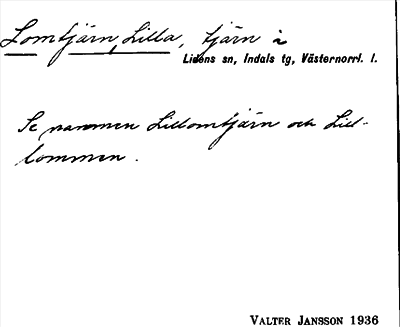 Lomtjärn, Lilla, tjärn i
Lidens sn, Indals tg, Västernorrl. l.
Se namnen Lillomtjärn och Lill-
lommen.
VALTER JANSSON 1936